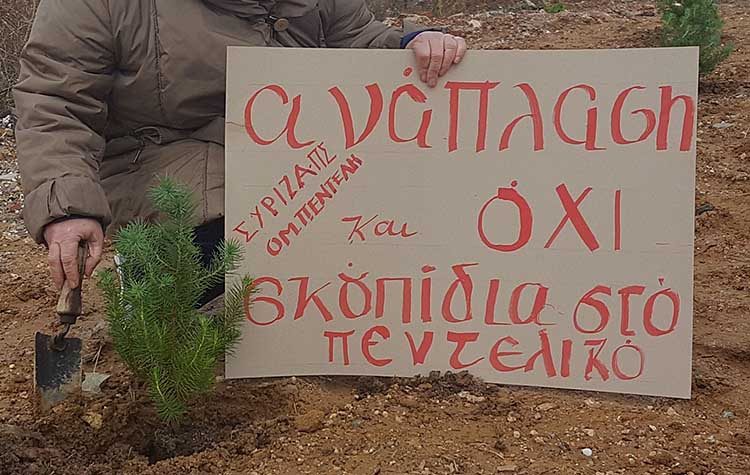 ανάπλαση
ΣΥΡΙΖΑ-ΠΣ
ΟΜ. ΠΕΝΤΕΛΗ
και ΌΧΙ
σκουπίδια στό
πεντελικό